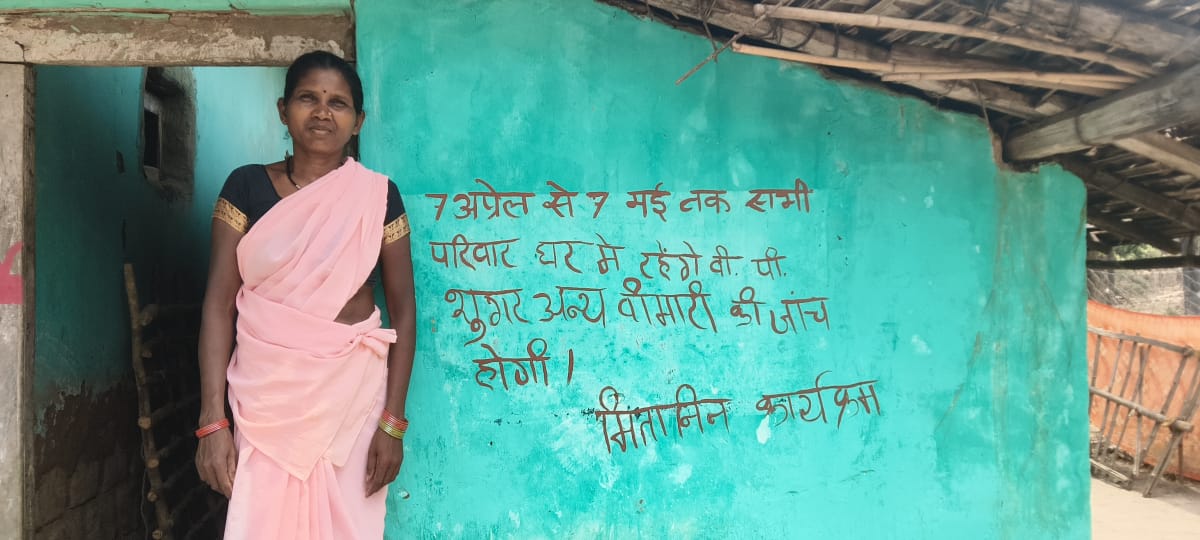 7 अप्रेल से 7 मई तक सभी
परिवार घर मे रहेंगे वी. पी.
शुगर अन्य वीमारी की जांच
होगी।
मितानिन कार्यक्रम